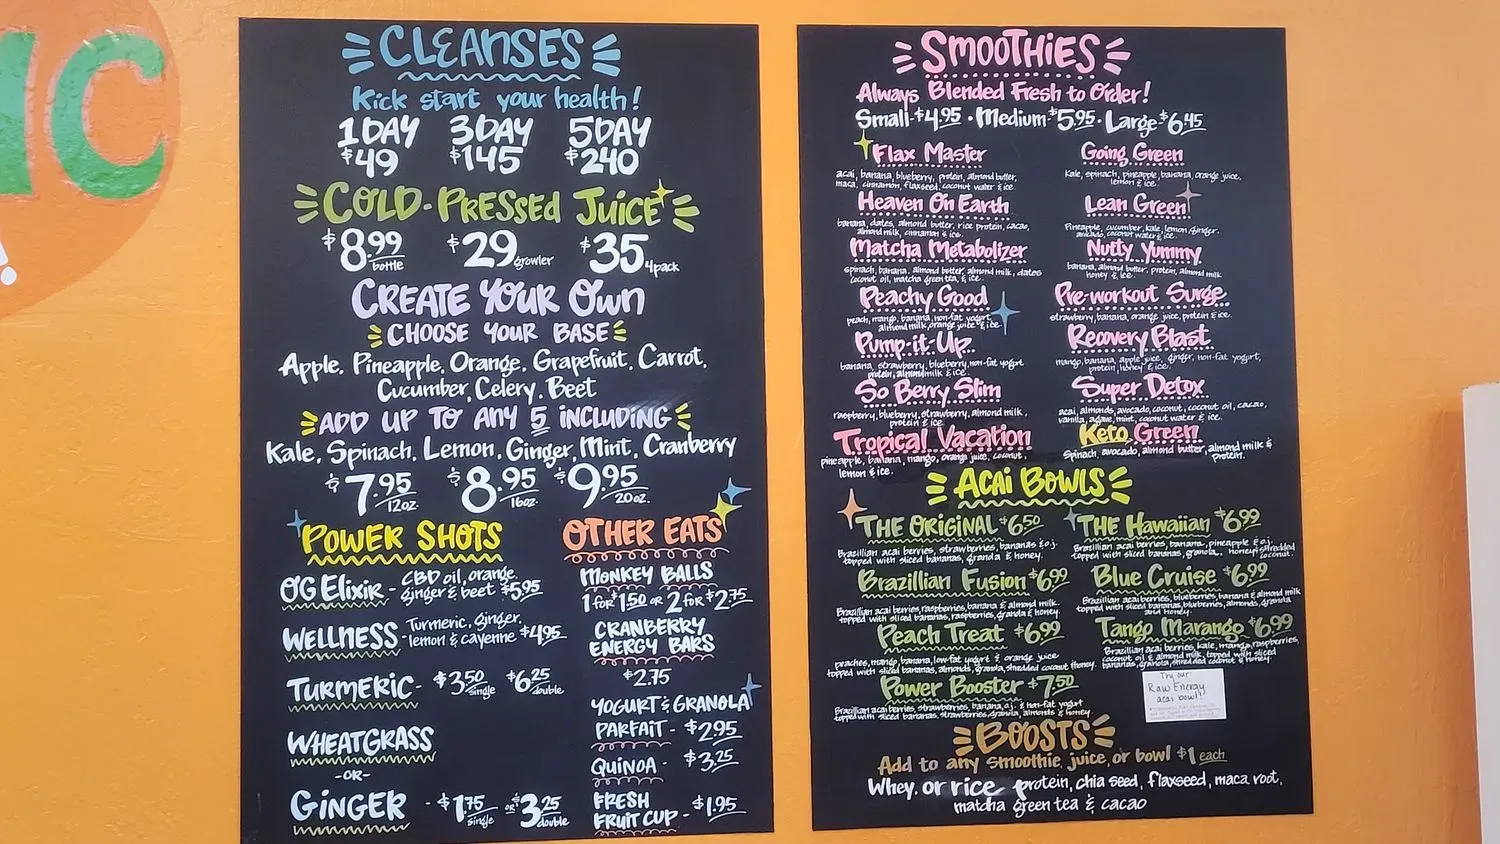 IC
!
CLEANSES
Kick start your health!
1 DAY 3 DAY 5 DAY
$49 $145 $240
COLD-PRESSED JUICE
$8.99 bottle $29 growler $35 4pack
CREATE YOUR OWN
CHOOSE YOUR BASE
Apple, Pineapple, Orange, Grapefruit, Carrot,
Cucumber, Celery, Beet
ADD UP TO ANY 5 INCLUDING
Kale, Spinach, Lemon, Ginger, Mint, Cranberry
$7.95 12oz. $8.95 16oz. $9.95 20oz.
POWER SHOTS
OG Elixir - CBD oil, orange,
ginger & beet $5.95
WELLNESS - Turmeric, ginger,
lemon & cayenne $4.95
TURMERIC - $3.50 single $6.25 double
WHEATGRASS
-OR-
GINGER - $1.75 single OR $3.25 double
OTHER EATS
MONKEY BALLS
1 for $1.50 OR 2 for $2.75
CRANBERRY
ENERGY BARS
$2.75
YOGURT & GRANOLA
PARFAIT - $2.95
QUINOA - $3.25
FRESH
FRUIT CUP - $1.95
SMOOTHIES
Always Blended Fresh to Order!
Small-$4.95 • Medium-$5.95 • Large-$6.45
Flax Master
acai, banana, blueberry, protein, almond butter,
maca, cinnamon, flaxseed, coconut water & ice.
Heaven On Earth
banana, dates, almond butter, rice protein, cacao,
almond milk, cinnamon & ice.
Matcha Metabolizer
spinach, banana, almond butter, almond milk, dates
coconut oil, matcha green tea, & ice.
Peachy Good
peach, mango, banana, non-fat yogurt,
almond milk, orange juice & ice
Pump-it-Up
banana, strawberry, blueberry, non-fat yogurt
protein, almond milk & ice.
So Berry Slim
raspberry, blueberry, strawberry, almond milk,
protein & ice.
Tropical Vacation
pineapple, banana, mango, orange juice, coconut,
lemon & ice.
Going Green
Kale, spinach, pineapple, banana, orange juice,
lemon & ice.
Lean Green
Pineapple, cucumber, kale, lemon, ginger,
avocado, coconut water & ice.
Nutty Yummy
banana, almond butter, protein, almond milk
honey & ice.
Pre-workout Surge
strawberry, banana, orange juice, protein & ice.
Recovery Blast
mango, banana, apple juice, ginger, non-fat yogurt,
protein, honey & ice.
Super Detox
acai, almonds, avocado, coconut, coconut oil, cacao,
vanilla, agave, mint, coconut water & ice.
Keto Green
Spinach, avocado, almond butter, almond milk &
protein.
ACAI BOWLS
THE ORIGINAL $6.50
Brazillian acai berries, strawberries, bananas & o.j.
topped with sliced bananas, granola & honey.
Brazillian Fusion $6.99
Brazillian acai berries, raspberries, banana & almond milk.
topped with sliced bananas, raspberries, granola & honey.
Peach Treat $6.99
peaches, mango, banana, low-fat yogurt & orange juice
topped with sliced bananas, almonds, granola, shredded coconut & honey.
Power Booster $7.50
Brazillian acai berries, strawberries, banana, o.j. & non-fat yogurt
topped with sliced bananas, strawberries, granola, almonds & honey.
THE Hawaiian $6.99
Brazillian acai berries, banana, pineapple & o.j.
topped with sliced bananas, granola, honey & shredded
coconut.
Blue Cruise $6.99
Brazillian acai berries, blueberries, banana & almond milk
topped with sliced bananas, blueberries, almonds, granola
and honey.
Tango Marango $6.99
Brazillian acai berries, kale, mango, raspberries,
coconut oil & almond milk, topped with sliced
bananas, granola, shredded coconut & honey.
Try our
Raw Energy
acai bowl!
BOOSTS
Add to any smoothie, juice, or bowl $1 each
Whey, or rice protein, chia seed, flaxseed, maca root,
matcha green tea & cacao